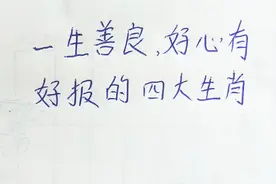 一生善良,好心有
好报的四大生肖